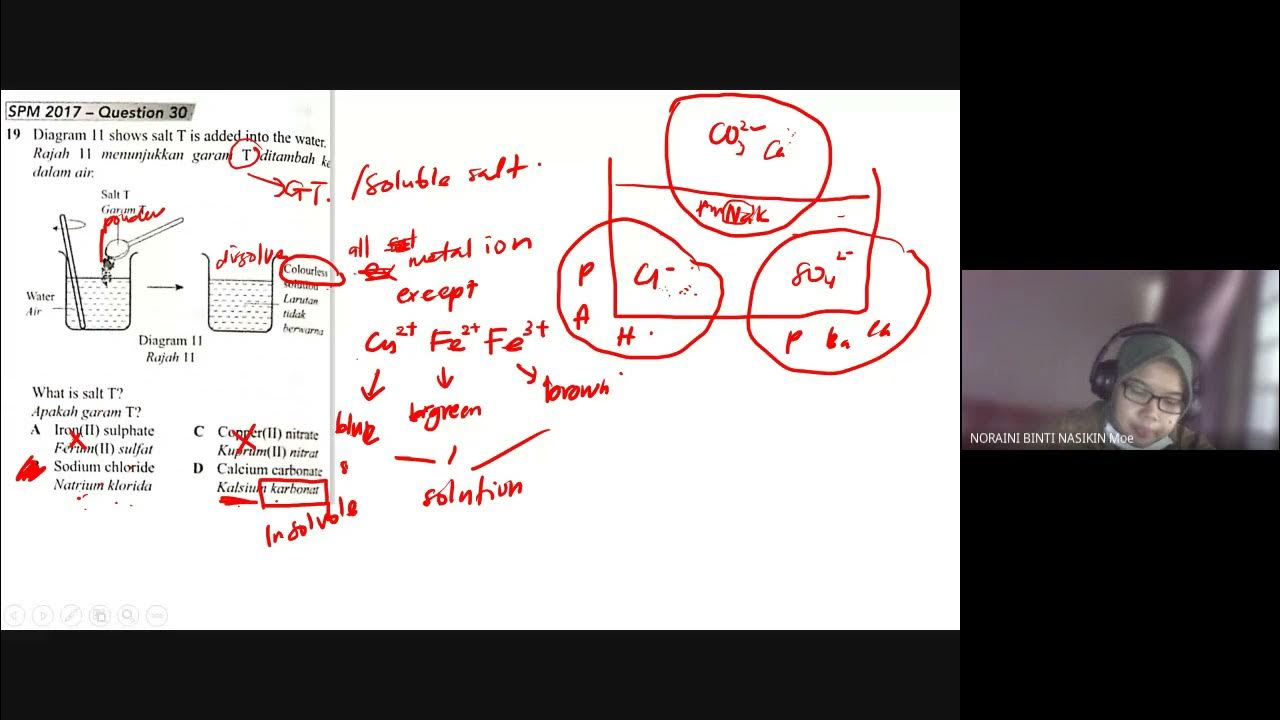 SPM 2017 – Question 30
19 Diagram 11 shows salt T is added into the water.
Rajah 11 menunjukkan garam T ditambah ke
dalam air.
GT. /soluble salt.
Salt T
Garam T
powder
dissolve
Colourless
solution
Larutan
tidak
berwarna
Water
Air
Diagram 11
Rajah 11
What is salt T?
Apakah garam T?
A Iron(II) sulphate
Ferum(II) sulfat
Sodium chloride
Natrium klorida
C Copper(II) nitrate
Kuprum(II) nitrat
D Calcium carbonate
Kalsium karbonat
all metal ion
except
Cu2+ Fe2+ Fe3+
blue green brown
solution
CO3 2-
Na K
P Cl-
A
H
SO4 2-
P Ba Ca
NORAINI BINTI NASIKIN Moe